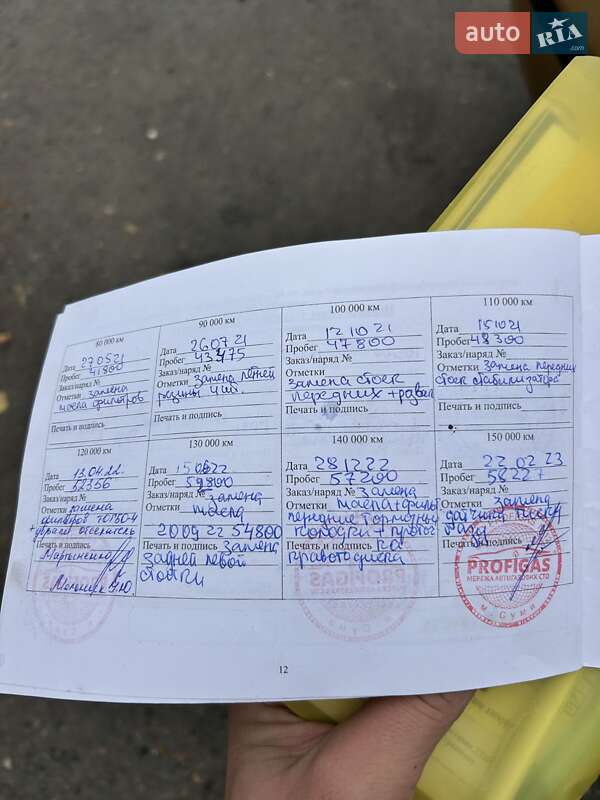 auto RIA .com
80 000 км
Дата 27.05.21
Пробег 41800
Заказ/наряд №
Отметки замена
масла фильтров
Печать и подпись
90 000 км
Дата 26.07.21
Пробег 43475
Заказ/наряд №
Отметки замена летней
резины
Печать и подпись
100 000 км
Дата 12.10.21
Пробег 47800
Заказ/наряд №
Отметки
замена стоек
передних + развал
Печать и подпись
110 000 км
Дата 15.10.21
Пробег 48300
Заказ/наряд №
Отметки замена передних
стоек стабилизатора
Печать и подпись
120 000 км
Дата 13.04.22
Пробег 52356
Заказ/наряд №
Отметки замена
Печать и подпись
130 000 км
Дата
Пробег
Заказ/наряд № замена
Отметки масла
20 09 22 54800
Печать и подпись замена
задней левой
стойки
140 000 км
Дата 28.12.22
Пробег 57200
Заказ/наряд № замена
Отметки масла + фильт
передние тормозные
колодки +
Печать и подпись
правого диска
150 000 км
Дата 22.02.23
Пробег
Заказ/наряд №
Отметки замена
Печать и подпись
PROFIGAS
МЕРЕЖА АВТОГАЗОВИХ СТО
м. Суми
12